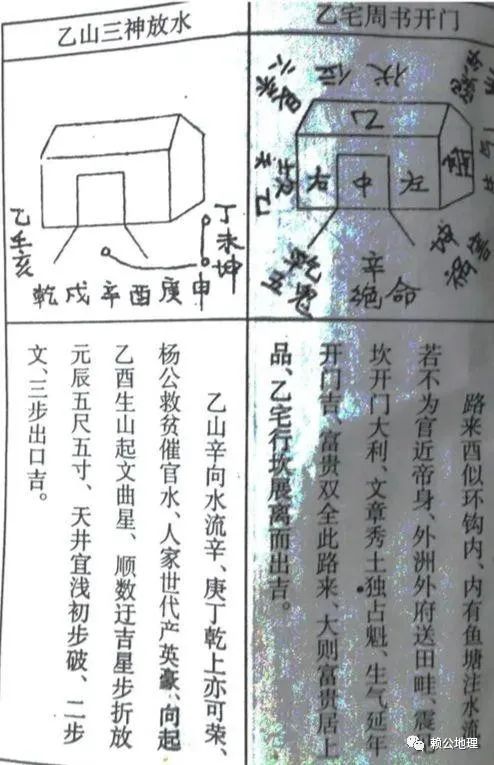 乙宅周书开门
伏位
乙
中
坤
辛
绝命
路来酉似环钩内、内有鱼塘注水流
若不为官近帝身、外洲外府送田畦、震
坎开门大利、文章秀士独占魁、生气延年
开门吉、富贵双全此路来、大则富贵居上
品、乙宅行坎展离而出吉。
乙山三神放水
乙壬亥
丁未坤
乾戌辛酉庚申
乙山辛向水流辛、庚丁乾上亦可荣、
杨公救贫催官水、人家世代产英豪、向起
乙酉生山起文曲星、顺数迂吉星步折放
元辰五尺五寸、天井宜浅初步破、二步
文、三步出口吉。
赖公地理